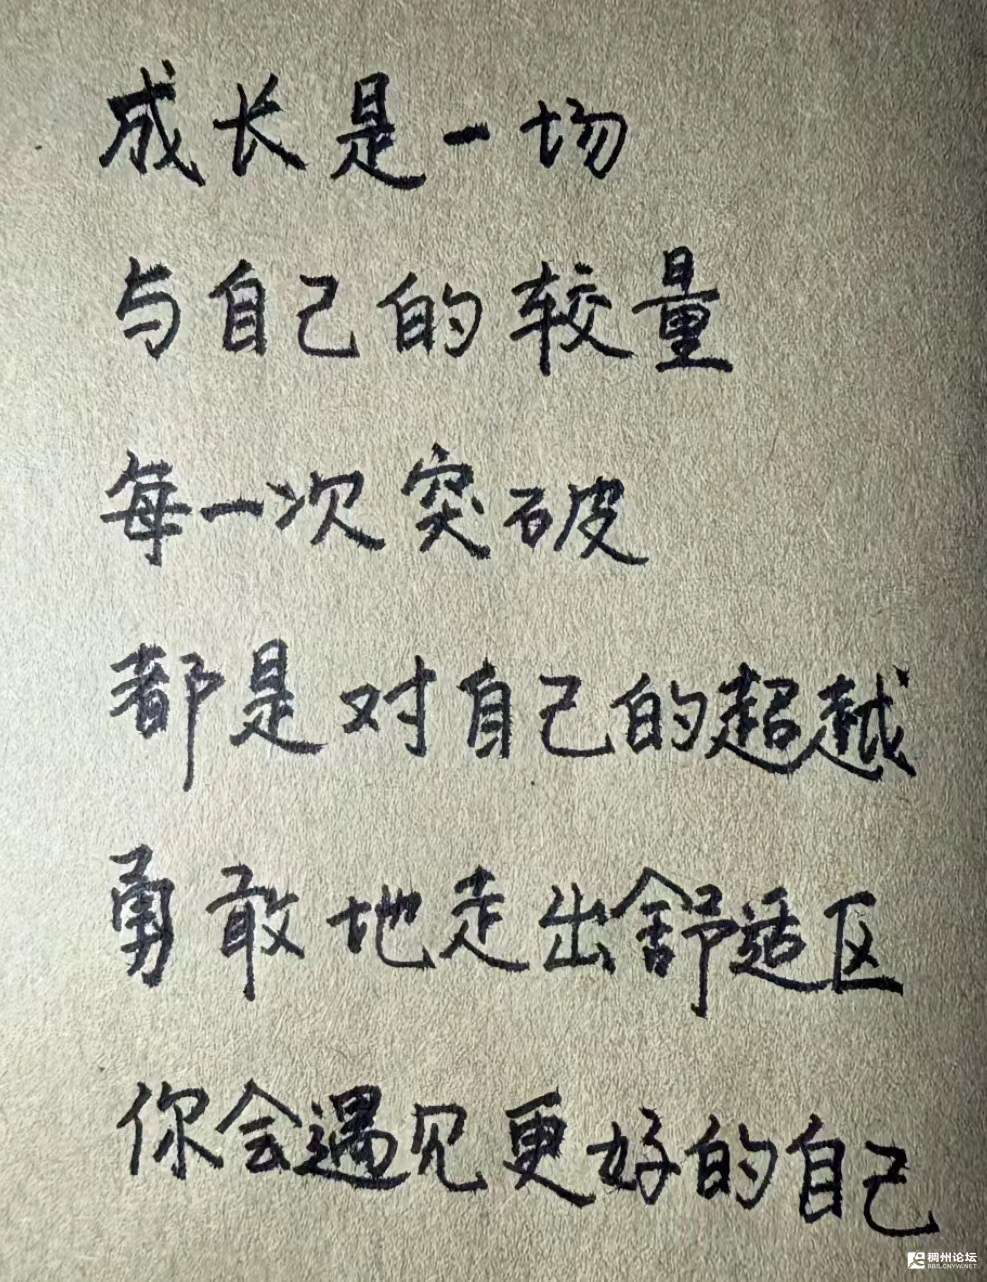 成长是一场
与自己的较量
每一次突破
都是对自己的超越
勇敢地走出舒适区
你会遇见更好的自己
稠州论坛
BBS.CNYW.NET